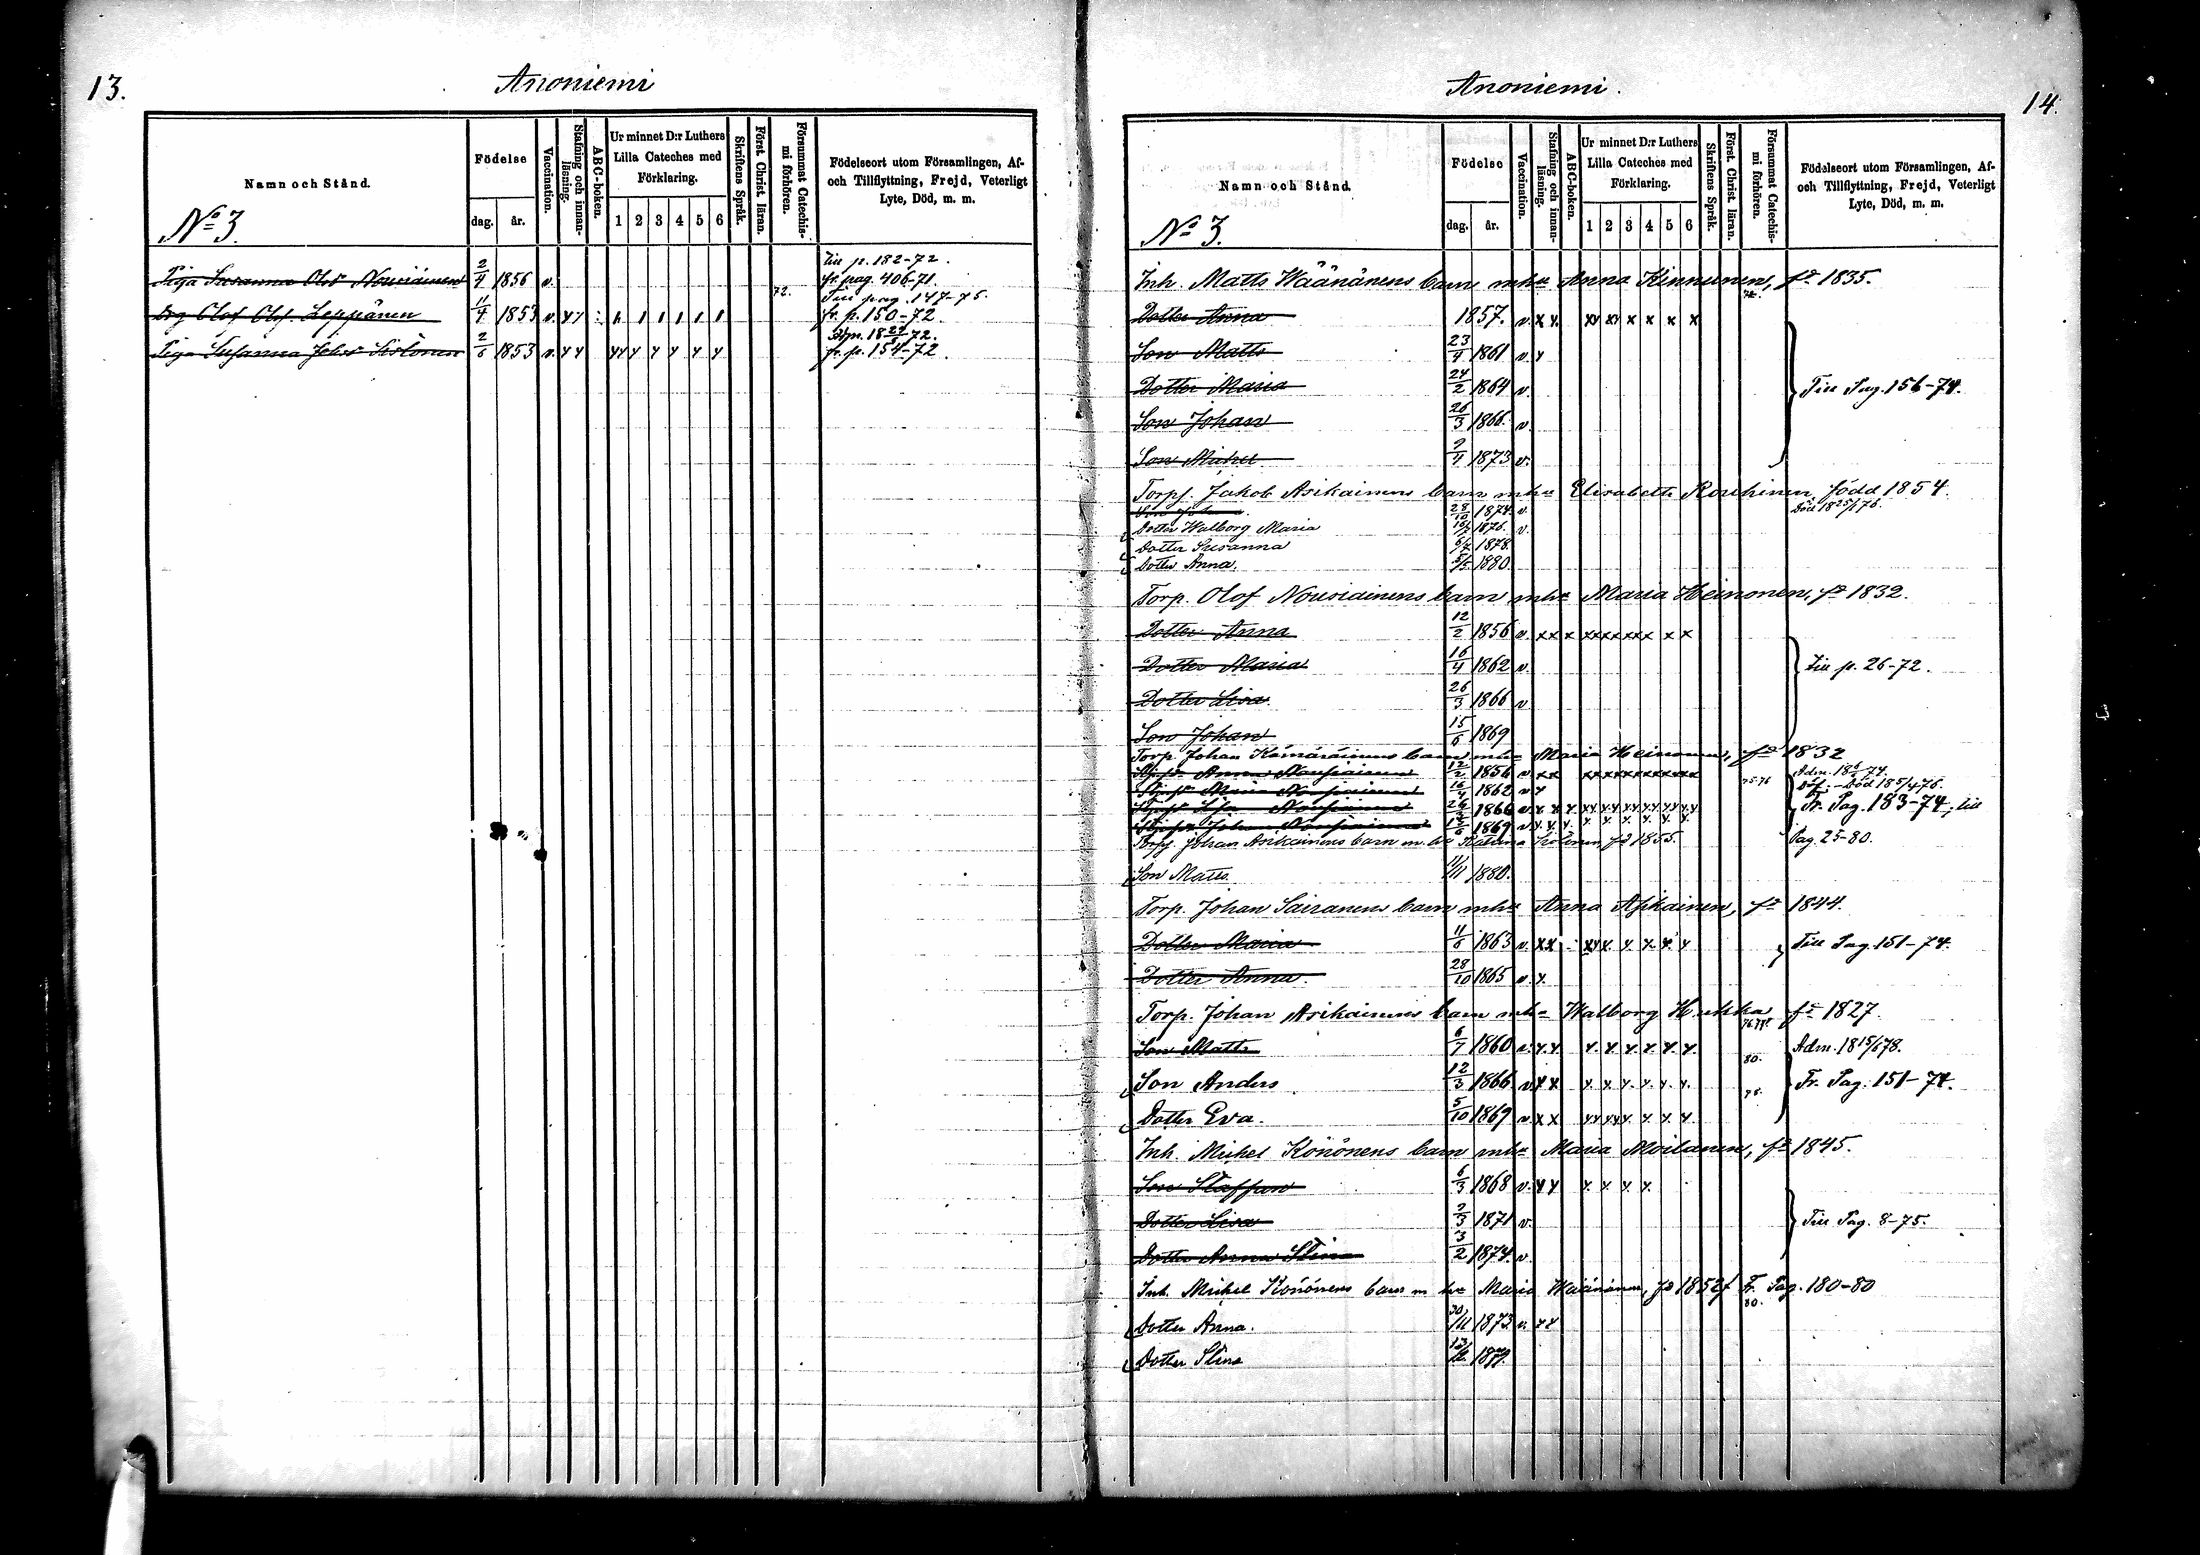 13.
Anoniemi
Namn och Stånd.
Födelse
dag.
år.
Vaccination.
Stafning och innanläsning.
ABC-boken.
Ur minnet D:r Luthers Lilla Cateches med Förklaring.
1 2 3 4 5 6
Skriftens Språk.
Först. Christ. läran.
Försummat Catechismi förhören.
Födelseort utom Församlingen, Af- och Tillflyttning, Frejd, Veterligt Lyte, Död, m. m.
No 3.
Till p. 182-72.
Piga Susanna Olsdr Nousiainen 2/4 1856 v. fr. pag. 406-71.
72. Till pag. 147-75.
Drg Olof Olofs. Leppänen 11/4 1853 v. fr. p. 150-72.
Piga Susanna Johsdr Sistonen 2/6 1853 v. fr. p. 154-72.
14.
Anoniemi.
Namn och Stånd.
Födelse
dag.
år.
Vaccination.
Stafning och innanläsning.
ABC-boken.
Ur minnet D:r Luthers Lilla Cateches med Förklaring.
1 2 3 4 5 6
Skriftens Språk.
Först. Christ. läran.
Försummat Catechismi förhören.
Födelseort utom Församlingen, Af- och Tillflyttning, Frejd, Veterligt Lyte, Död, m. m.
No 3.
Inh. Matts Wäänänens barn mhu Anna Kinnunen, fd 1835.
Dotter Anna 1857. v. x x. xx xx x x x x
Son Matts 23/4 1861 v. x
Dotter Maria 24/2 1864 v. Till Pag. 156-74.
Son Johan 26/3 1866. v.
Son Michel 2/4 1873 v.
Torp. Jakob Asikainens barn mhu Elisabeth Rouhinen, född 1854.
Son Johan. 28/10 1874. v.
Dotter Walborg Maria 1876. v.
Dotter Susanna 6/7 1878.
Dotter Anna. 5/5 1880.
Torp. Olof Nousiainens barn mhu Maria Heinonen, fd 1832.
Dotter Anna 12/2 1856 v. x x x xx xx x x x x
Dotter Maria 16/4 1862 v. Till p. 26-72.
Dotter Lisa 26/3 1866 v
Son Johan 15/6 1869
Torp. Johan Kämäräinens barn mhu Maria Heinonen, fd 1832
Anna Nousiainen 12/2 1856 v x x 75-76
Maria Nousiainen 16/4 1862 v x
Lisa Nousiainen 26/3 1866 v. x x x Fr. Pag. 183-74; till
Johan Nousiainen 15/6 1869 v x. x. x.
Torp. Johan Asikainens barn m. hu Katarina fd 1855. Pag. 25-80.
Son Matts. 11/11 1880.
Torp. Johan Sairanens barn mhu Anna Asikainen, fd 1844.
Dotter Maria 11/6 1863 v. x x Till Pag. 151-74.
Dotter Anna. 28/10 1865 v. x.
Torp. Johan Asikainens barn mhu Walborg Hukka fd 1827.
Son Matts 6/7 1860 v. x. x. x. x x x x. x. Adm. 18 15/6 78.
80.
Son Anders 12/3 1866 v. x x x. x x. x. x. x. Fr. Pag. 151-74.
Dotter Eva. 5/10 1869 v. x x xx xx x. x. x. x
Inh. Michel Könönens barn mhu Maria Moilanen, fd 1845.
Son Staffan 6/3 1868 v. x x x. x. x x.
Dotter Lisa 2/3 1871 v. Till Pag. 8-75.
Dotter Anna Stina 3/2 1874. v.
Inh. Michel Könönens barn m hu Maria Wäänänen, fd 1852 Fr. Pag. 180-80
80.
Dotter Anna. 30/11 1873 v. x x
Dotter Stina 1879.